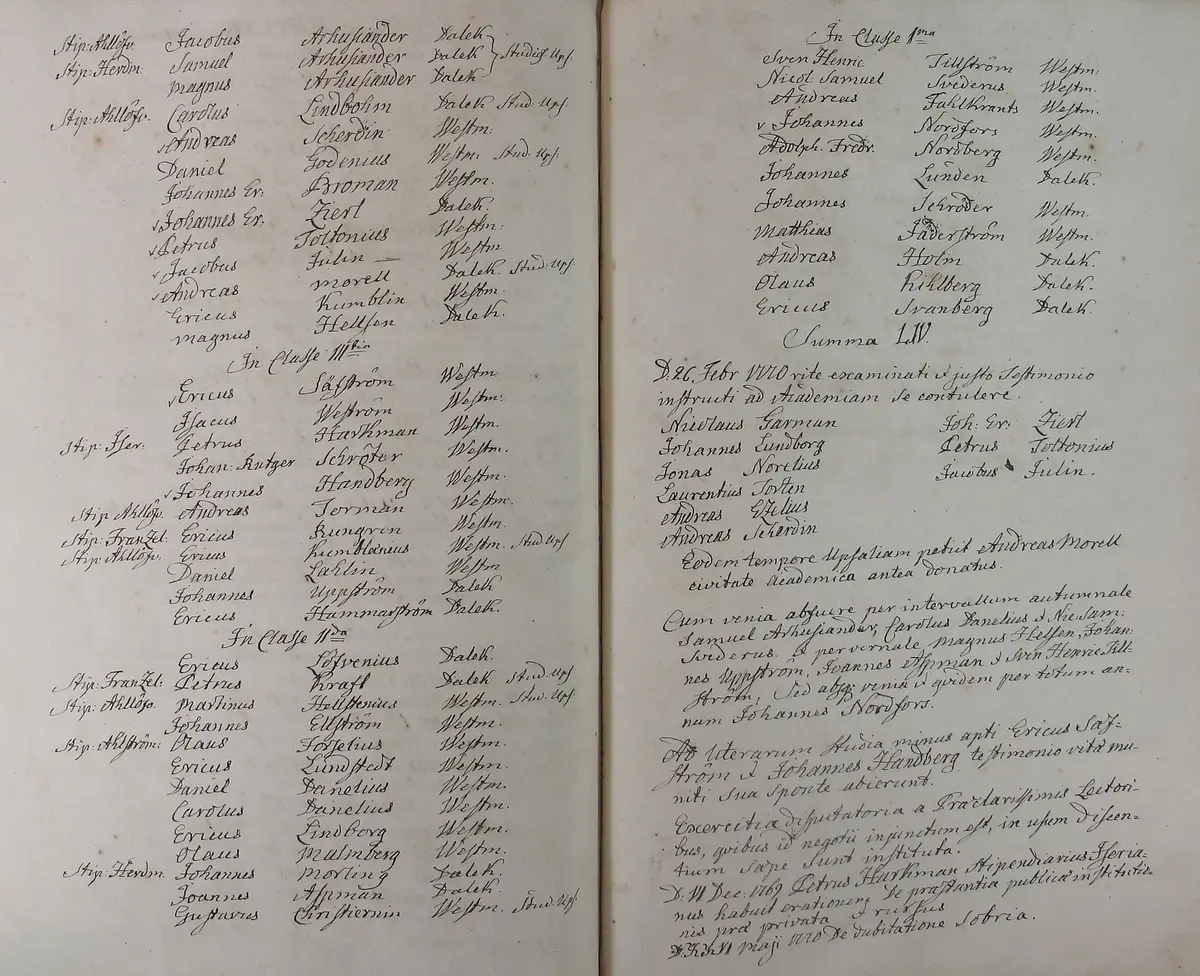 Stip: Ahllöfv. Jacobus Arhusiander Dalek
Stip: Herdm. Samuel Arhusiander Dalek Studiis Ups.
Magnus Arhusiander Dalek
Stip: Ahllöfv. Carolus Lindbohm Dalek Stud: Ups.
v Andreas Scherdin Westm:
Daniel Godenius Westm: Stud: Ups.
Johannes Er: Broman Westm.
v Johannes Er. Zierl Dalek.
v Petrus Toltonius Westm:
v Jacobus Julin — Westm
v Andreas Morell Dalek. Stud: Ups.
Ericus Kumblin Westm.
Magnus Hellsen Dalek.
In Classe III tia
v Ericus Säfström Westm.
Isacus Weström Westm:
Stip: Iser: Petrus Harkman Westm.
Johan: Rutger Schröter Westm.
v Johannes Handberg Westm.
Stip Ahllöfv. Andreas Torman Westm.
Stip: Franzel: Ericus Rungren Westm.
Stip: Ahllöfv. Ericus Kumblæus Westm. Stud Ups
Daniel Lahlin Westm
Johannes Uppström Dalek
Ericus Hammarström Dalek.
In Classe II da
Ericus Löfvenius Dalek.
Stip: Franzel: Petrus Kraft Dalek Stud Ups
Stip: Ahllöfv. Martinus Hellstenius Westm. Stud. Ups.
Johannes Ellström Westm.
Stip: Ahlström: Olaus Forselius Westm.
Ericus Lundstedt Westm.
Daniel Danelius Westm.
Carolus Danelius Westm.
Ericus Lindborg Westm.
Olaus Malmberg Westm.
Stip: Herdm. Johannes Morling Dalek.
Joannes Aspman Dalek.
Gustavus Christiernin Westm. Stud: Ups.
In Classe I ma
Sven Henric Tillström Westm:
Nicol: Samuel Svederus Westm.
Andreas Fahlkrants Westm.
v Johannes Nordfors Westm.
Adolph. Fredr. Nordberg Westm.
Johannes Lunden Dalek.
Johannes Schröder Westm.
Matthias Fäderström Westm.
Andreas Holm Dalek.
Olaus Kihlberg Dalek.
Ericus Svanberg Dalek.
Summa LIV.
D. 26. Febr 1770 rite examinati & justo Testimonio
instructi ad Academiam se contulere.
Nicolaus Garman Joh: Er: Zierl
Johannes Lundborg Petrus Toltonius
Jonas Norelius Jacobus Julin.
Laurentius Torten
Andreas Ezelius
Andreas Scherdin
Eodem tempore Upsaliam petiit Andreas Morell
civitate Academica antea donatus.
Cum venia abfuere per intervallum autumnale
Samuel Arhusiander, Carolus Danelius & Nic: Sam:
Svederus. & per vernale Magnus Hellsen, Johan-
nes Uppström, Joannes Aspman & Sven Henric Till-
ström, Sed absq; venia & quidem per totum an-
num Johannes Nordfors.
Ad literarum studia minus apti Ericus Säf-
ström & Johannes Handberg testimonio vitæ mu-
niti sua sponte abierunt.
Exercitia disputatoria a Præclarissimis Lectori-
bus, quibus id negotii injunctum est, in usum discen-
tium sæpe sunt instituta.
D. 11 Dec. 1769 Petrus Harkman Stipendiarius Iseria-
nus habuit orationem de præstantia publicæ institutio-
nis præ privata & rursus
11 Maji 1770 De dubitatione Sobria.